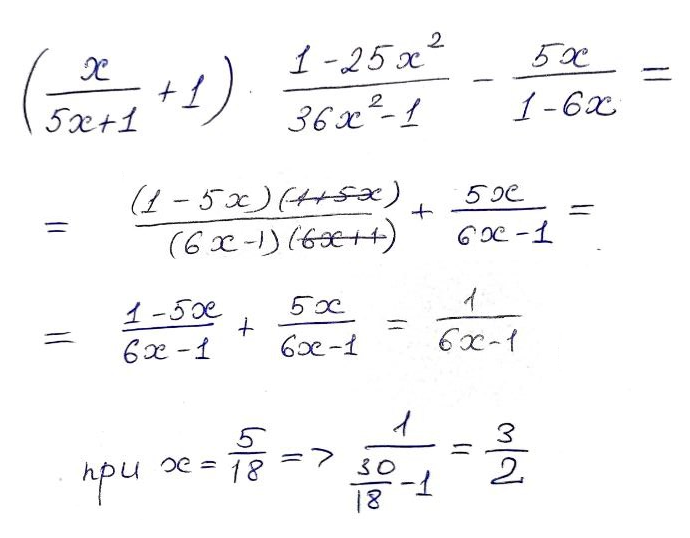 (x/(5x+1) + 1) · (1-25x²)/(36x²-1) - 5x/(1-6x) =
= (1-5x)(1+5x)/((6x-1)(6x+1)) + 5x/(6x-1) =
= (1-5x)/(6x-1) + 5x/(6x-1) = 1/(6x-1)
при x = 5/18 => 1/(30/18 - 1) = 3/2